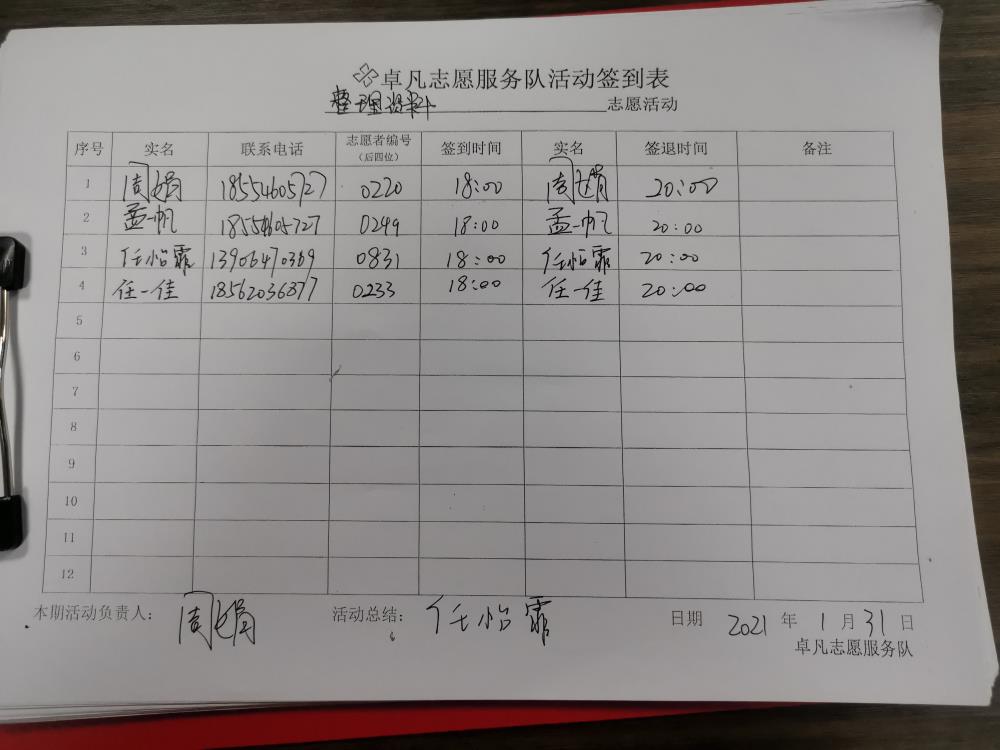 卓凡志愿服务队活动签到表
整理资料 志愿活动
序号 实名 联系电话 志愿者编号（后四位） 签到时间 实名 签退时间 备注
1 周娟 18554605727 0220 18:00 周娟 20:00
2 孟一帆 18554605727 0249 18:00 孟一帆 20:00
3 任怡霏 13906470369 0831 18:00 任怡霏 20:00
4 任一佳 18562036877 0233 18:00 任一佳 20:00
5
6
7
8
9
10
11
12
本期活动负责人： 周娟 活动总结： 任怡霏 日期 2021 年 1 月 31 日
卓凡志愿服务队